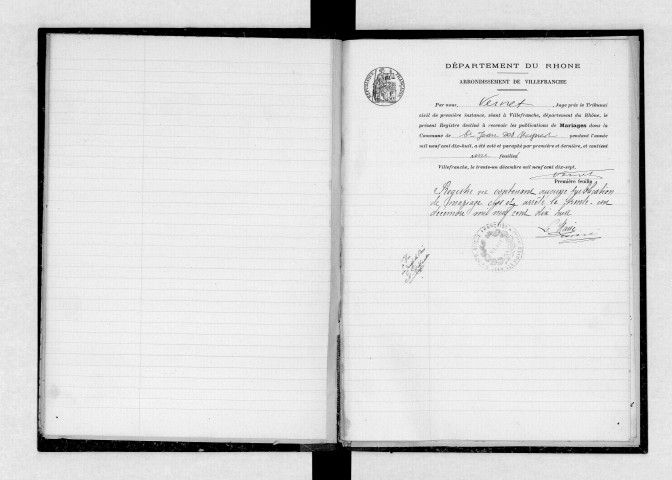 DÉPARTEMENT DU RHONE
ARRONDISSEMENT DE VILLEFRANCHE
Par nous, Vernet, Juge près le Tribunal
civil de première instance, séant à Villefranche, département du Rhône, le
présent Registre destiné à recevoir les publications de Mariages dans la
Commune de St Jean des Vignes pendant l'année
mil neuf cent dix-huit, a été coté et paraphé par première et dernière, et contient
feuillets
Villefranche, le trente-un décembre mil neuf cent dix-sept.
Vernet
Première feuille
Registre ne contenant aucune publication
de mariage clos et arrêté le trente-un
décembre mil neuf cent dix huit
Le Maire